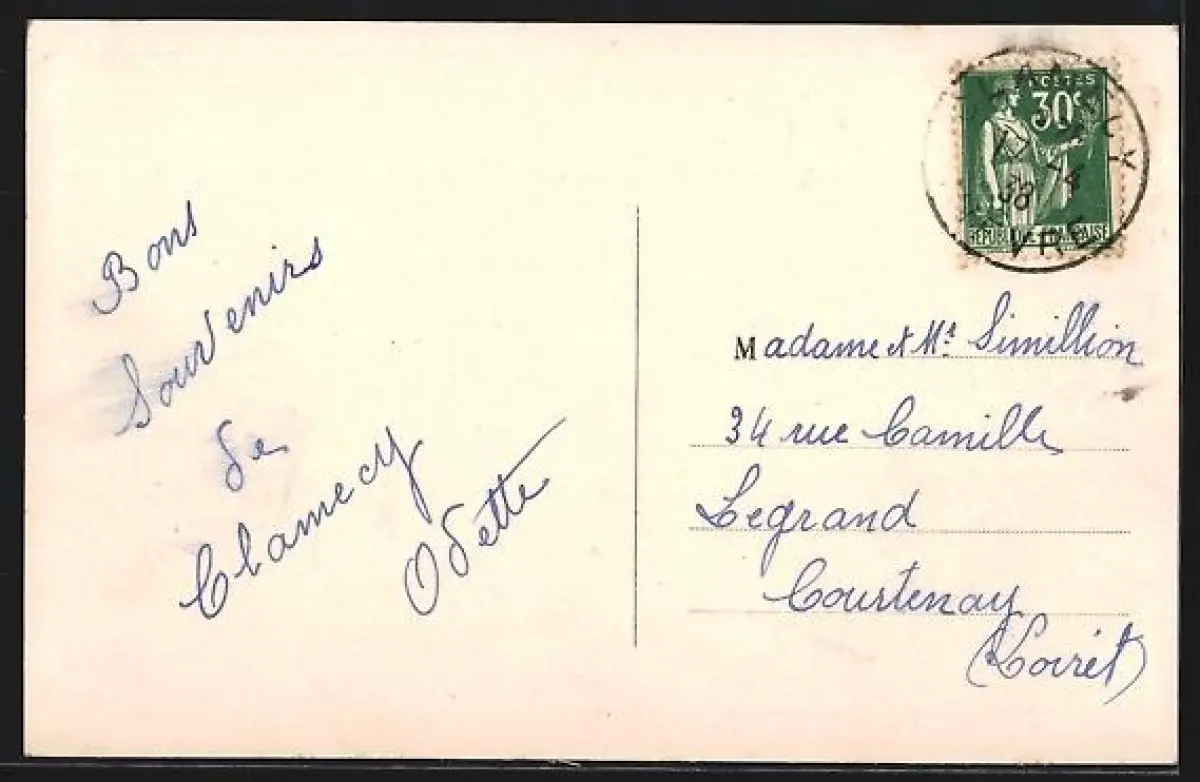 Bons
Souvenirs
de
Clamecy
Odette
POSTES
30c
CLAMECY
17 -4
38
NIEVRE
Madame et Mr Simillion
34 rue Camille
Legrand
Courtenay
(Loiret)